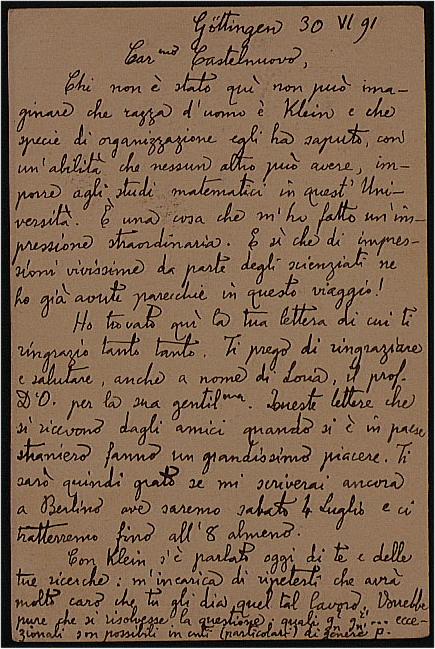 Göttingen 30 VI 91
Car.mo Castelnuovo,
Chi non è stato quì non può ima-
ginare che razza d'uomo è Klein e che
specie di organizzazione egli ha saputo, con
un'abilità che nessun altro può avere, im-
porre agli studi matematici in quest'Uni-
versità. È una cosa che m'ha fatto un'im-
pressione straordinaria. E sì che di impres-
sioni vivissime da parte degli scienziati ne
ho già avute parecchie in questo viaggio!
Ho trovato quì la tua lettera di cui ti
ringrazio tanto tanto. Ti prego di ringraziare
e salutare, anche a nome di Loria, il prof.
D'O. per la sua gentil.ma. Queste lettere che
si ricevono dagli amici quando si è in paese
straniero fanno un grandissimo piacere. Ti
sarò quindi grato se mi scriverai ancora
a Berlino ove saremo sabato 4 Luglio e ci
tratterremo fino all'8 almeno.
Con Klein s'è parlato oggi di te e delle
tue ricerche: m'incarica di ripeterti che avrà
molto caro che tu gli dia quel tal lavoro. Vorrebbe
pure che si risolvesse la questione: quali ... ecce-
zionali son possibili in enti (particolari) di genere p.